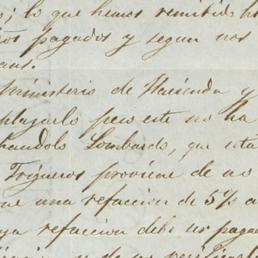 ; lo que hemos remitido h
os pagados y segun nos
Ministerio de Hacienda y
plazarlo pero este no ha
handolo Lombardo, que esta
Trigueros proviene de no
ue una refaccion de 5% a
ya refaccion debe ser paga